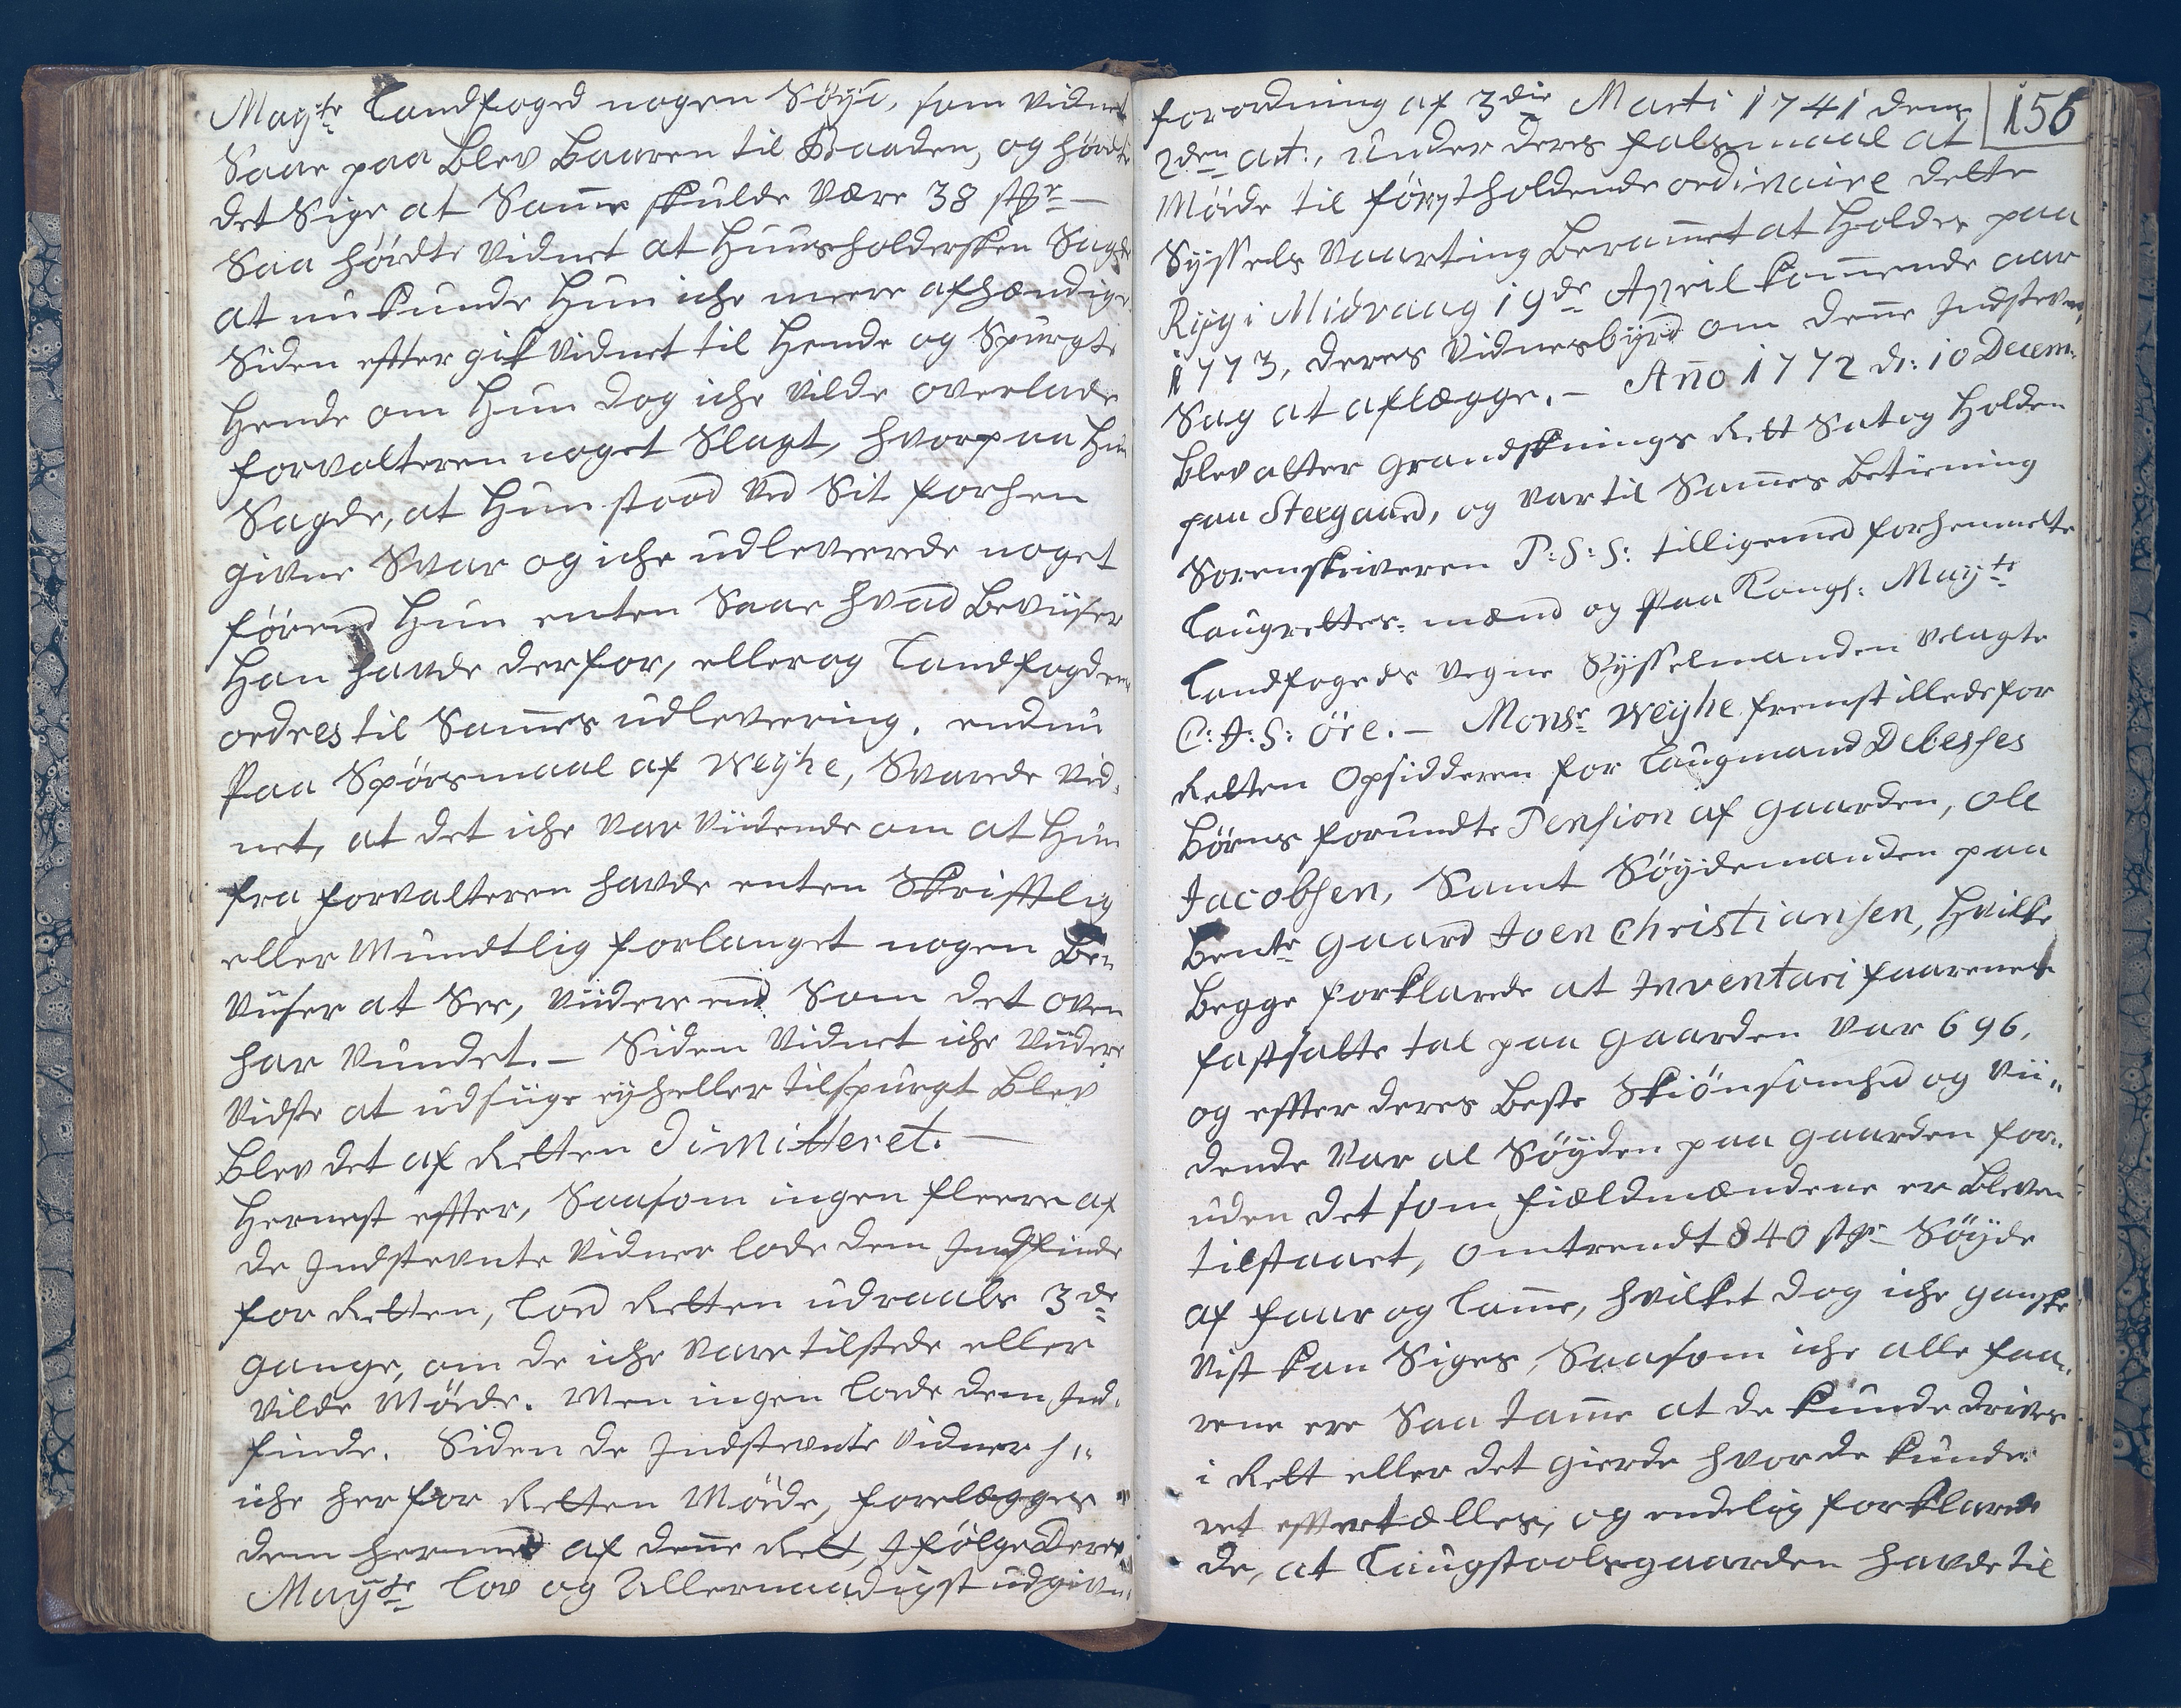 Maÿ:tz Landfoged nogen Söÿd, som Vidnet
Saae paa blev baaren til Baaden, og hørdte
det Sige at Samme skulde være 38 stkr –
Saa hørdte Vidnet at Huusholdersken Sagde
at nu kunde Hun iche meere afhændige.
Siden efter gik Vidnet til Hende og Spurgte
Hende om Hun dog iche vilde overlade
forvalteren noget Slagt, hvorpaa Hun
Sagde, at Hun stood ved Sit forhen
givne Svar og iche udleverede noget
førend Hun enten Saae hvad Beviiser
Han havde derfor, eller og Landfogdens
ordres til Sammes udlevering. endnu
Paa Spørsmaal af Weÿhe, Svarede Vid-
net, at det iche var Viidende om at Hun
fra forvalteren havde enten Skrifftlig
eller Mundtlig forlanget nogen Be-
viiser at See, viidere end Som det oven
har Vundet. – Siden Vidnet iche Viidere
Vidste at udsiige eÿheller tilspurgt blev
blev det af Retten Dimitteret. –
Hernest effter, Saasom ingen fleere af
de Indstevnte Vidner lode dem Indfinde
for Retten, lod Retten udraabe 3de
gange, om de iche vare tilstede eller
vilde Møde. Men ingen lode dem Ind-
finde. Siden de Indstevnte Vidner
iche her for Retten Møde, forelægges
dem hermed af denne Rett, Ifølge Deres
Maÿts Lov og Allernaadigst udgivne
forordning af 3die Marti 1741 dens
155
2den art:, under deres falsmaal at
Møde til førstholdende ordinaire dette
Syssels Vaarting berammet at Holdes paa
Ryg i Midvaag 19de April kommende aar
1773, deres Vidnesbyrd om denne Indstevnte
Sag at aflægge. – Año 1772 d: 10 Decem-
blev atter Grandsknings Rett Sat og Holden
paa Steegaard, og var til Sammes betiening
Sorenskriveren P: S: S: tilligemed forhenmelte
Laugrettes-mænd og Paa Kongl: Maÿts
Landfogeds Vegne Sysselmanden Velagte
C: J: S: öre. – Monsr Weÿhe fremstillede for
Retten Opsidderen for Laugmand Debesses
Børns forundte Pension af gaarden, Ole
Jacobsen, Samt Söÿdemanden paa
bente gaard Joen Christiansen, Hvilke
begge forklarede at Inventari faarenes
fastsatte tal paa gaarden var 696,
og effter deres beste Skiønsomhed og Vii-
dende var al Söÿden paa gaarden for-
uden det som fieldmændene er bleven
tilstaaet, omtrendt 840 stkr Söÿde
af faar og lamme, hvilket dog iche ganske
vist kan Siges, Saasom iche alle faa-
rene ere Saa tamme at de kunde drives
i Rett eller det gierde hvor de kunde
ret efftertælles, og endelig forklare-
de, at Laugstoolsgaarden havde til